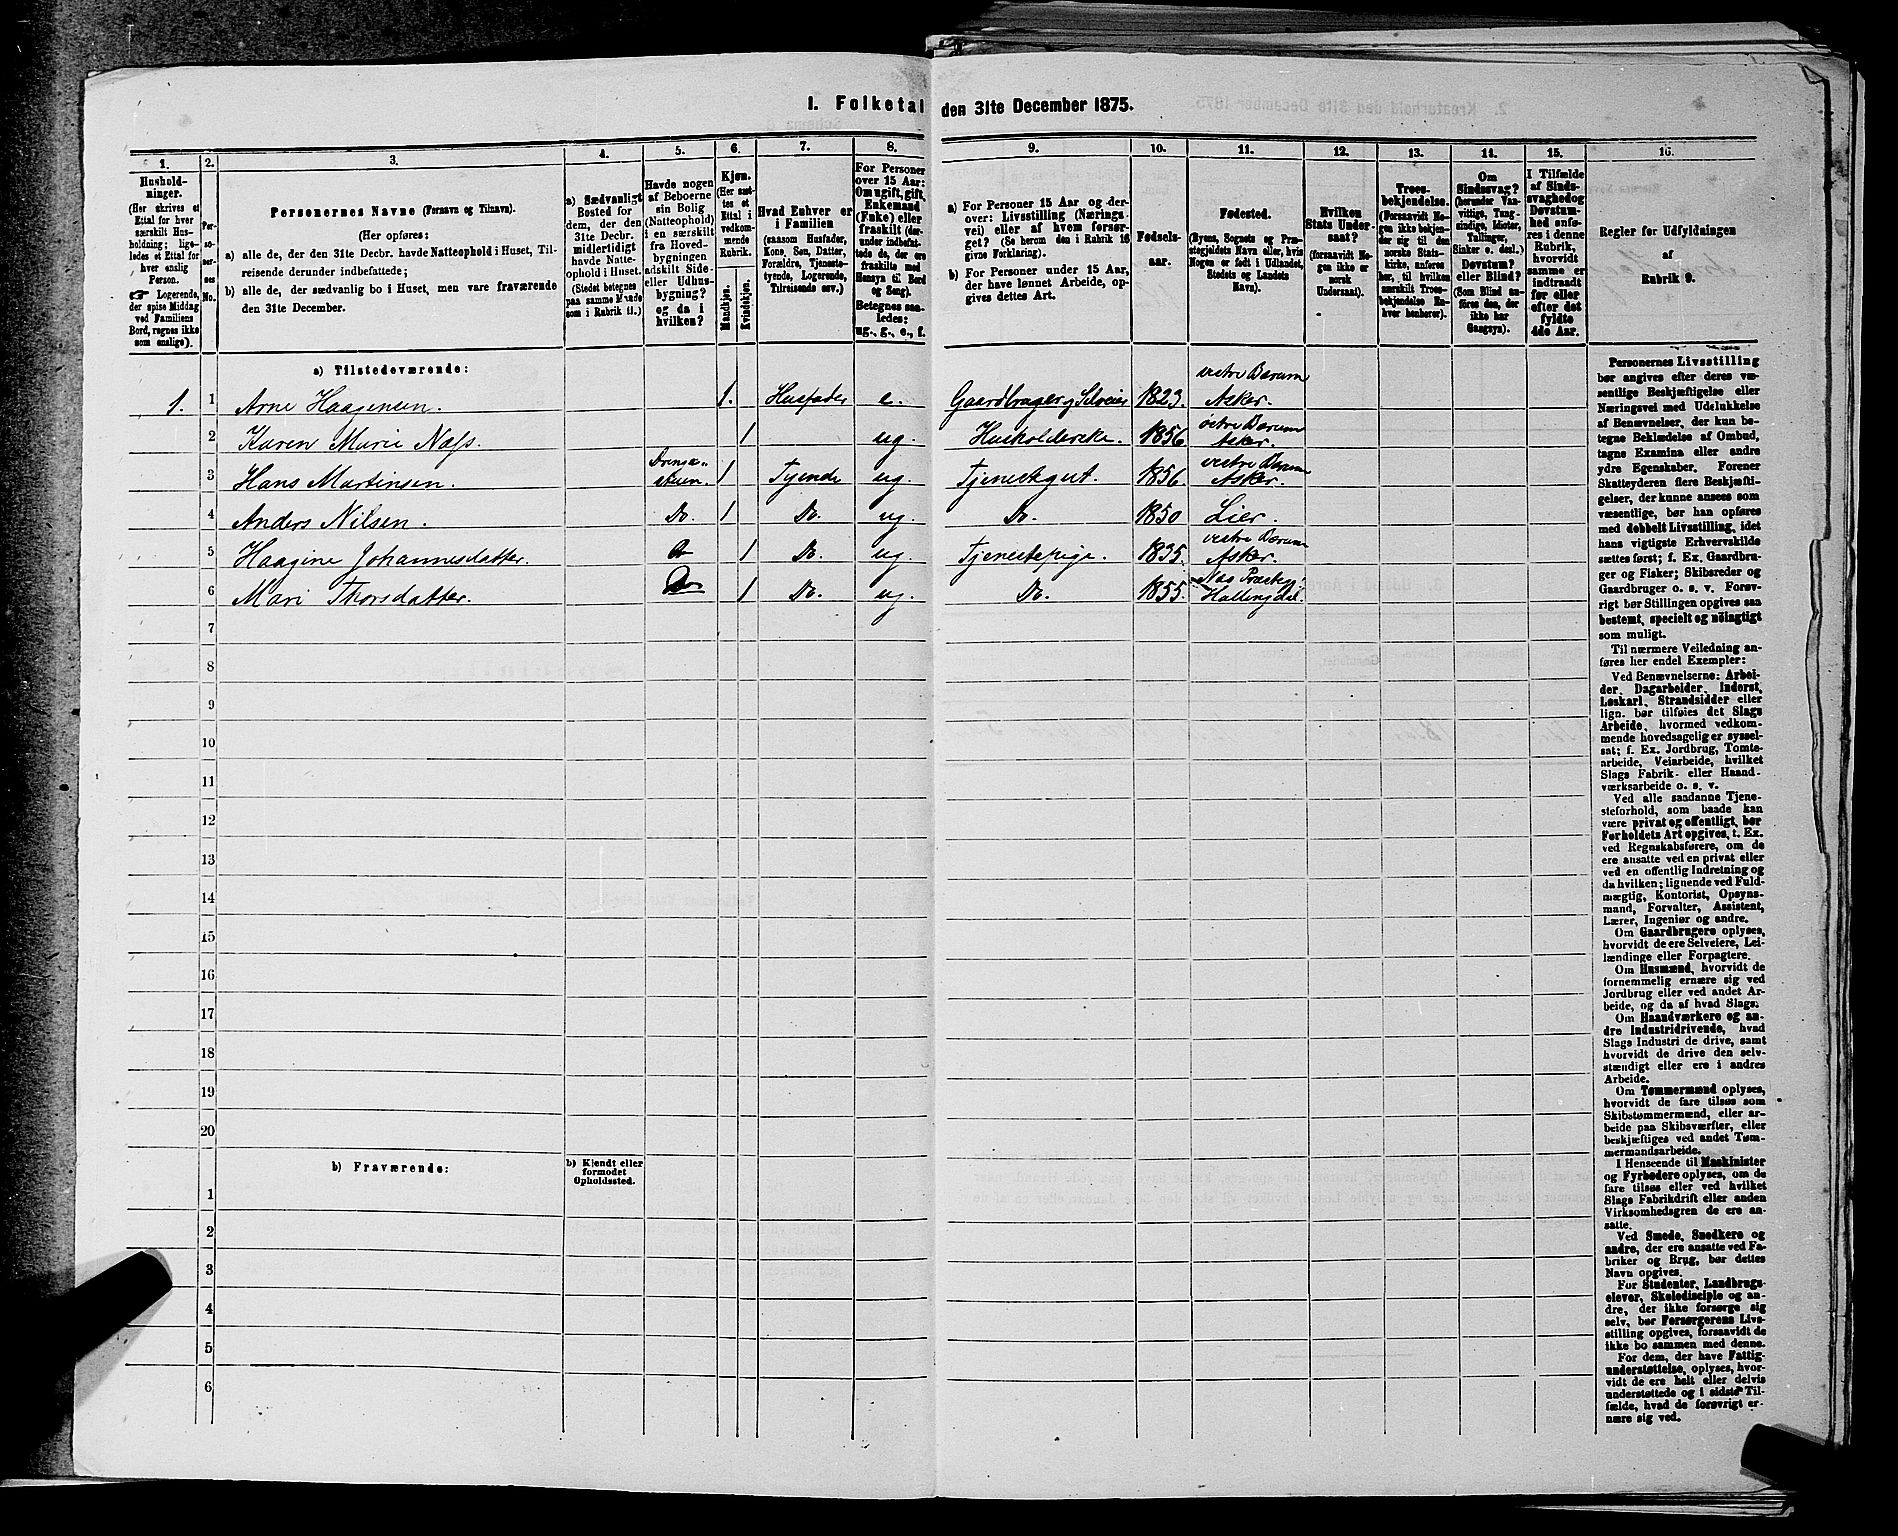 1. Folketal den 31te December 1875.
1. 2. 3. 4. 5. 6. 7. 8. 9. 10. 11. 12. 13. 14. 15. 16.
Hushold-
ninger.
(Her skrives et
Ettal for hver
særskilt Hus-
holdning; lige-
ledes et Ettal for
hver enslig
Person.
☞ Logerende,
der spise Middag
ved Familiens
Bord, regnes ikke
som enslige).
Per-
so-
ner-
nes
No.
Personernes Navne (Fornavn og Tilnavn).
(Her opføres:
a) alle de, der den 31te Decbr. havde Natteophold i Huset, Til-
reisende derunder indbefattede;
b) alle de, der sædvanlig bo i Huset, men vare fraværende
den 31te December.
a) Sædvanligt
Bosted for
dem, der den
31te Decbr.
midlertidigt
havde Natte-
ophold i Huset.
(Stedet betegnes
paa samme Maade
som i Rubrik 11.)
Havde nogen
af Beboerne
sin Bolig
(Natteophold)
i en særskilt
fra Hoved-
bygningen
adskilt Side-
eller Udhus-
bygning?
og da i
hvilken?
Kjøn.
(Her sæt-
tes et
Ettal i
vedkom-
mende
Rubrik.
Mandkjøn.
Kvindekjøn.
Hvad Enhver er
i Familien
(saasom Husfader,
Kone, Søn, Datter,
Forældre, Tjeneste-
tyende, Logerende,
Tilreisende osv.)
For Personer
over 15 Aar:
Om ugift, gift,
Enkemand
(Enke) eller
fraskilt (der-
under indbefat-
tede de, der ere
fraskilte med
Hensyn til Bord
og Seng).
Betegnes saa-
ledes:
ug., g., e., f.
a) For Personer 15 Aar og der-
over: Livsstilling (Nærings-
vei) eller af hvem forsør-
get? (Se herom den i Rubrik 16
givne Forklaring).
b) For Personer under 15 Aar,
der have lønnet Arbeide, op-
gives dettes Art.
Fødsels-
aar.
Fødested.
(Byens, Sognets og Præ-
stegjeldets Navn eller, hvis
Nogen er født i Udlandet,
Stedets og Landets
Navn).
Hvilken
Stats Under-
saat?
(forsaavidt No-
gen ikke er
norsk
Undersaat).
Troes-
bekjendelse.
(Forsaavidt No-
gen ikke bekjen-
der sig til den
norske Stats-
kirke, anføres
her, til hvilken
særskilt Troes-
bekjendelse En-
hver henhører).
Om
Sindssvag?
(herunder Van-
vittige, Tung-
sindige, Idioter,
Tullinger,
Sinker o. desl.)
Døvstum?
eller Blind?
(Som Blind an-
føres den, der
ikke har
Gangsyn).
I Tilfælde
af Sinds-
svaghed og
Døvstum-
hed anfø-
res i denne
Rubrik,
hvorvidt
samme er
indtraadt
før eller
efter det
fyldte
4de Aar.
Regler for Udfyldningen
af
Rubrik 9.
a) Tilstedeværende:
1. 1 Arne Haagensen. 1. Husfader e. Gaardbruger og Selveier 1823. vestre Bærum Asker.
2 Karen Marie Næss. 1 ug. Husholderske. 1856 østre Bærum Asker.
3 Hans Martinsen. Drenge-stuen. 1 Tyende ug. Tjenestgut. 1856. vestre Bærum Asker.
4 Anders Nilsen. Do. 1 Do. ug. Do. 1850 Lier.
5 Haagine Johannesdatter. 1 Do. ug. Tjenestepige. 1835. vestre Bærum Asker.
6 Mari Thorsdatter. Do 1 Do. ug. Do. 1855. Næs Præstegj. Hallingdal.
7
8
9
10
11
12
13
14
15
16
17
18
19
20
b) Fraværende:
b) Kjendt eller
formodet
Opholdssted.
1
2
3
4
5
6
Personernes Livsstilling
bør angives efter deres væ-
sentlige Beskjæftigelse eller
Næringsvei med Udelukkelse
af Benævnelser, der kun be-
tegne Beklædelse af Ombud,
tagne Examina eller andre
ydre Egenskaber. Forener
Skatteyderen flere Beskjæfti-
gelser, der kunne ansees som
væsentlige, bør han opføres
med dobbelt Livsstilling, idet
hans vigtigste Erhvervskilde
sættes først; f. Ex. Gaardbru-
ger og Fisker; Skibsreder og
Gaardbruger o. s. v. Forøv-
rigt bør Stillingen opgives saa
bestemt, specielt og nøiagtigt
som muligt.
Til nærmere Veiledning an-
føres her endel Exempler:
Ved Benævnelserne: Arbei-
der, Dagarbeider, Inderst,
Løskarl, Strandsidder eller
lign. bør tilføies det Slags
Arbeide, hvormed vedkom-
mende hovedsagelig er syssel-
sat; f. Ex. Jordbrug, Tomte-
arbeide, Veiarbeide, hvilket
Slags Fabrik- eller Haand-
værksarbeide o. s. v.
Ved alle saadanne Tjene-
steforhold, som baade kan
være privat og offentligt, bør
Forholdets Art opgives, t. Ex.
ved Regnskabsførere, om de
ere ansatte ved en privat eller
ved en offentlig Indretning og
da hvilken; lignende ved Fuld-
mægtig, Kontorist, Opsyns-
mand, Forvalter, Assistent,
Lærer, Ingeniør og andre.
Om Gaardbrugere oplyses,
hvorvidt de ere Selveiere, Lei-
lændinge eller Forpagtere.
Om Husmænd, hvorvidt de
fornemmelig ernære sig ved
Jordbrug eller ved andet Ar-
beide, og da af hvad Slags.
Om Haandværkere og an-
dre Industridrivende, hvad
Slags Industri de drive, samt
hvorvidt de drive den selv-
stændigt eller ere i andres
Arbeide.
Om Tømmermænd oplyses,
hvorvidt de fare tilsøs som
Skibstømmermænd, eller ar-
beide paa Skibsværfter, eller
beskjæftiges ved andet Tøm-
mermandsarbeide.
I Henseende til Maskinister
og Fyrbødere oplyses, om de
fare tilsøs eller ved hvilket
Slags Fabrikdrift eller anden
Virksomhedsgren de ere an-
satte.
Ved Smede, Snedkere og
andre, der ere ansatte ved Fa-
briker og Brug, bør dettes
Navn opgives.
For Studenter, Landbrugs-
elever, Skoledisciple og an-
dre, der ikke forsørge sig
selv, bør Forsørgerens Livs-
stilling opgives, forsaavidt de
ikke bo sammen med denne.
For dem, der have Fattig-
understøttelse, oplyses, hvor-
vidt de ere helt eller delvis
understøttede og i sidste Til-
fælde, hvad de forøvrigt er-
nære sig ved.